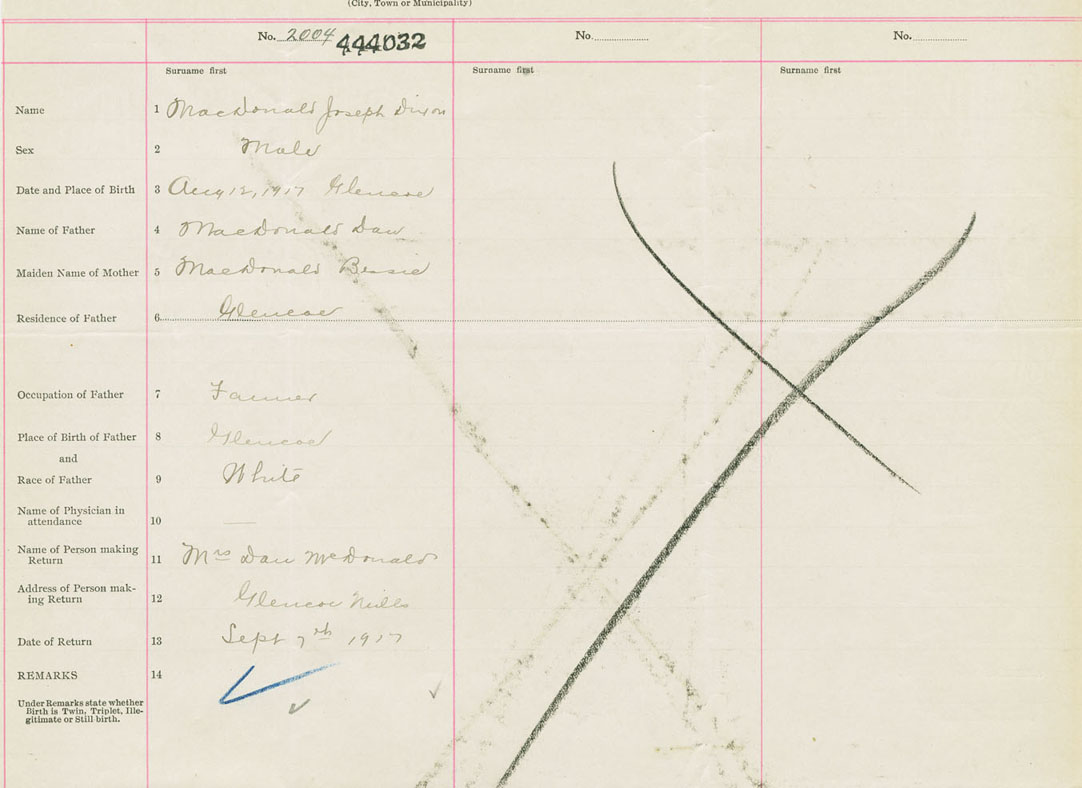 (City, Town or Municipality)
No. 2004 444032 No. No.
Surname first Surname first Surname first
Name 1 MacDonald Joseph Dixon
Sex 2 Male
Date and Place of Birth 3 Aug 12, 1917 Glencoe
Name of Father 4 MacDonald Dan
Maiden Name of Mother 5 MacDonald Bessie
Residence of Father 6 Glencoe
Occupation of Father 7 Farmer
Place of Birth of Father 8 Glencoe
and
Race of Father 9 White
Name of Physician in
attendance 10 —
Name of Person making
Return 11 Mrs Dan McDonald
Address of Person mak-
ing Return 12 Glencoe Mills
Date of Return 13 Sept 7th 1917
REMARKS 14
Under Remarks state whether
Birth is Twin, Triplet, Ille-
gitimate or Still birth.